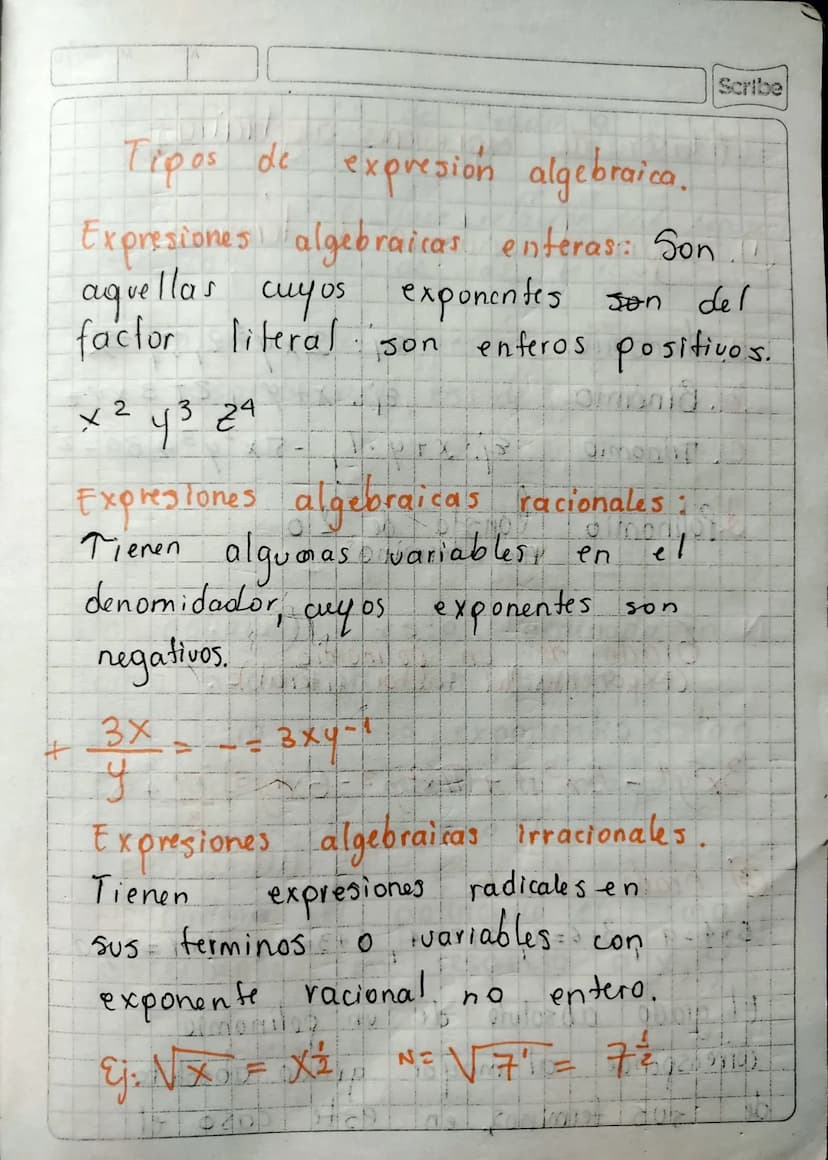 Scribe
Tipos de expresión algebraica.
Expresiones algebraicas enteras: Son
aquellas cuyos exponentes son del
factor literal son enteros positivos.
x² y³ z⁴
Expresiones algebraicas racionales:
Tienen algunas variables, en el
denomidador, cuyos exponentes son
negativos.
+ 3x/y = - = 3xy⁻¹
Expresiones algebraicas irracionales.
Tienen expresiones radicales en
sus terminos o variables con
exponente racional no entero.
Ej: √x = x^½ N= √7 = 7^½